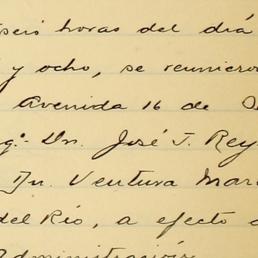 seis horas del día
y ocho, se reunieron
Avenida 16 de S
g.º Dn. José T. Rey
Dn. Ventura Mar
del Río, a efecto d
Administración